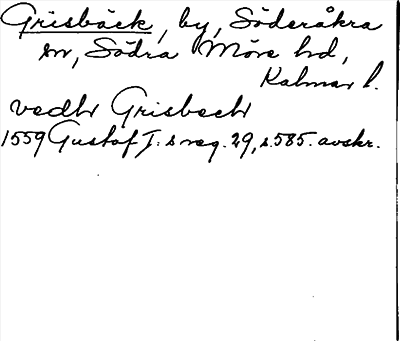 Grisbäck, by, Söderåkra
sn, Södra Möre hd,
Kalmar l.
vedh Grisbech
1559 Gustaf I:s reg. 29, s.585. avskr.